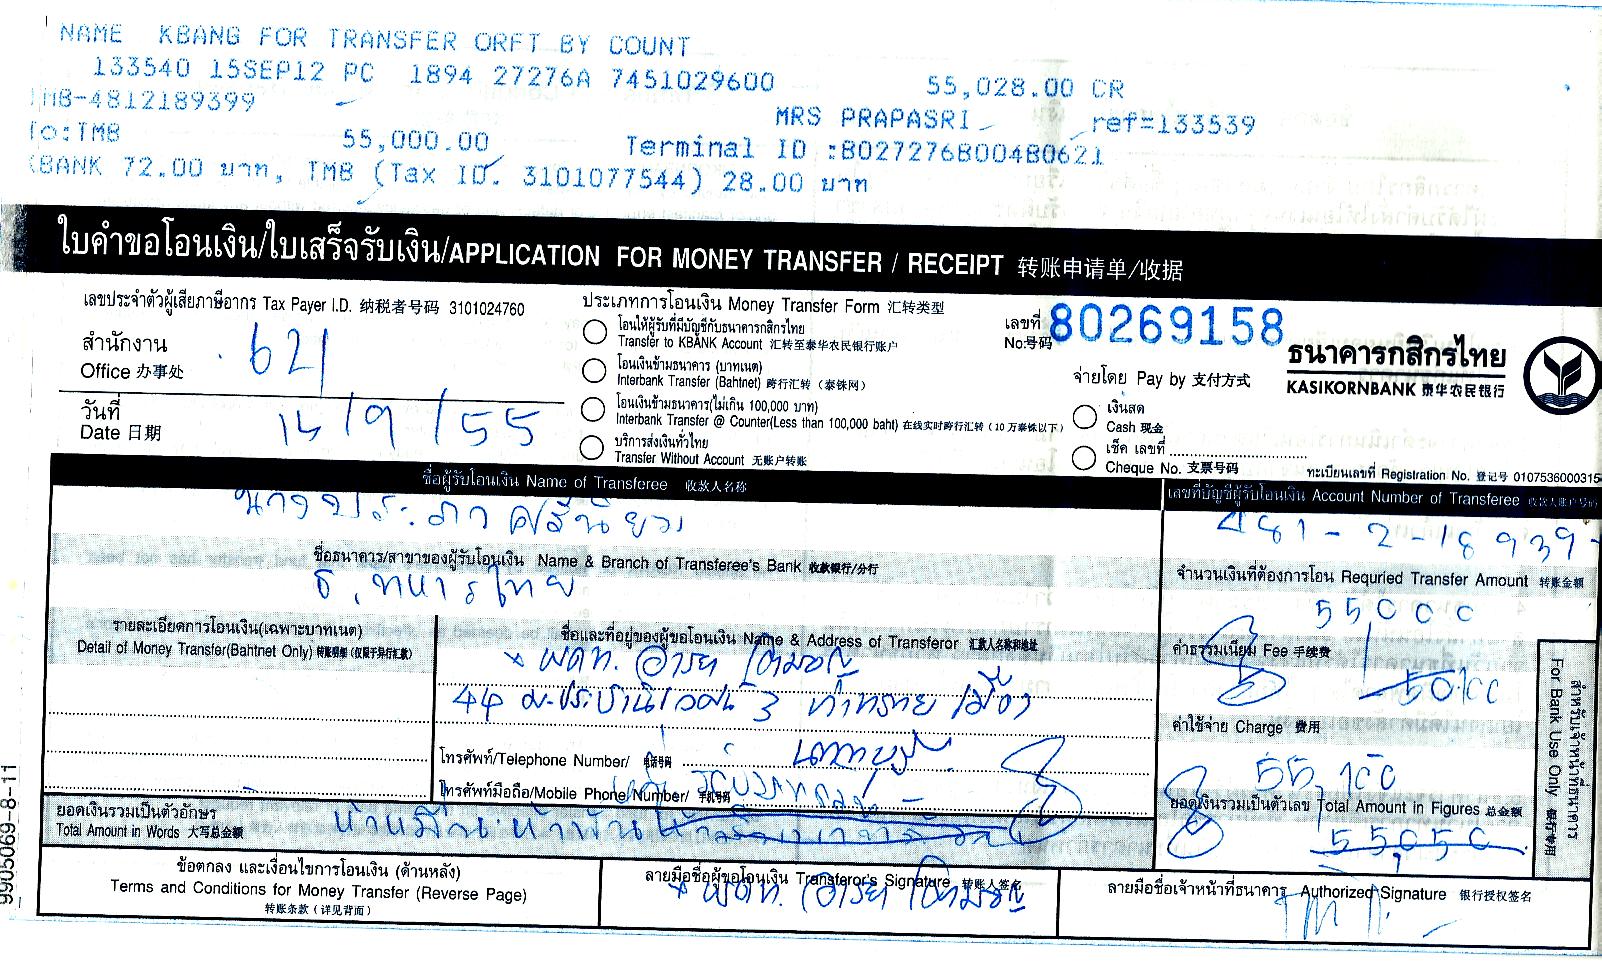 NAME KBANG FOR TRANSFER ORFT BY COUNT
133540 15SEP12 PC 1894 27276A 7451029600 55,028.00 CR
TMB-4812189399 MRS PRAPASRI ref=133539
To:TMB 55,000.00 Terminal ID :B027276B004B0621
KBANK 72.00 บาท, TMB (Tax ID. 3101077544) 28.00 บาท
ใบคำขอโอนเงิน/ใบเสร็จรับเงิน/APPLICATION FOR MONEY TRANSFER / RECEIPT 转账申请单/收据
เลขประจำตัวผู้เสียภาษีอากร Tax Payer I.D. 纳税者号码 3101024760
สำนักงาน
Office 办事处 621
วันที่
Date 日期 14/9/55
ประเภทการโอนเงิน Money Transfer Form 汇转类型
โอนให้ผู้รับที่มีบัญชีกับธนาคารกสิกรไทย
Transfer to KBANK Account 汇转至泰华农民银行账户
โอนเงินข้ามธนาคาร (บาทเนต)
Interbank Transfer (Bahtnet) 跨行汇转 (泰铢网)
โอนเงินข้ามธนาคาร(ไม่เกิน 100,000 บาท)
Interbank Transfer @ Counter(Less than 100,000 baht) 在线实时跨行汇转 (10 万泰铢以下)
บริการส่งเงินทั่วไทย
Transfer Without Account 无账户转账
เลขที่
No.号码 80269158
จ่ายโดย Pay by 支付方式
เงินสด
Cash 现金
เช็ค เลขที่
Cheque No. 支票号码
ธนาคารกสิกรไทย
KASIKORNBANK 泰华农民银行
ทะเบียนเลขที่ Registration No. 登记号 0107536000315
ชื่อผู้รับโอนเงิน Name of Transferee 收款人名称
นางประภาศรี
เลขที่บัญชีผู้รับโอนเงิน Account Number of Transferee 收款人账户号码
481-2-18939-
ชื่อธนาคาร/สาขาของผู้รับโอนเงิน Name & Branch of Transferee's Bank 收款银行/分行
ธ.ทหารไทย
จำนวนเงินที่ต้องการโอน Requried Transfer Amount 转账金额
55000
รายละเอียดการโอนเงิน(เฉพาะบาทเนต)
Detail of Money Transfer(Bahtnet Only) 转账明细(仅限于异行汇款)
ชื่อและที่อยู่ของผู้ขอโอนเงิน Name & Address of Transferor 汇款人名称和地址
44 ประชานิเวศน์ 3 ท่าทราย เมือง
นนทบุรี
ค่าธรรมเนียม Fee 手续费
50 100
ค่าใช้จ่าย Charge 费用
55,100
โทรศัพท์/Telephone Number/ 电话号码
โทรศัพท์มือถือ/Mobile Phone Number/ 手机号码
ยอดเงินรวมเป็นตัวเลข Total Amount in Figures 总金额
55,050
สำหรับเจ้าหน้าที่ธนาคาร
For Bank Use Only 银行专用
ยอดเงินรวมเป็นตัวอักษร
Total Amount in Words 大写总金额
ห้าหมื่นห้าพันห้าสิบบาทถ้วน
ข้อตกลง และเงื่อนไขการโอนเงิน (ด้านหลัง)
Terms and Conditions for Money Transfer (Reverse Page)
转账条款 (详见背面)
ลายมือชื่อผู้ขอโอนเงิน Transferor's Signature 转账人签名
ลายมือชื่อเจ้าหน้าที่ธนาคาร Authorized Signature 银行授权签名
9905069-8-11